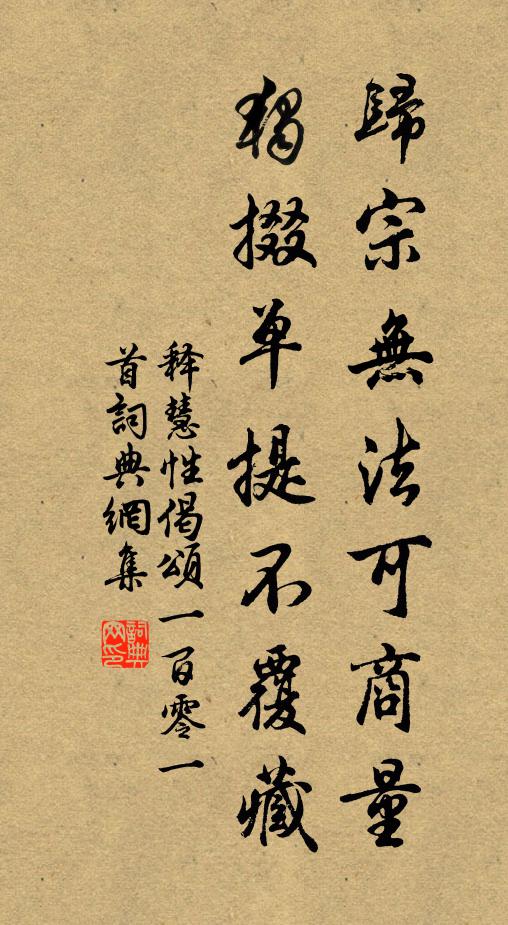 歸宗無法可商量
獨掇单提不覆藏
释慧性偈頌一百零一
首詞典網集
詞典
网印